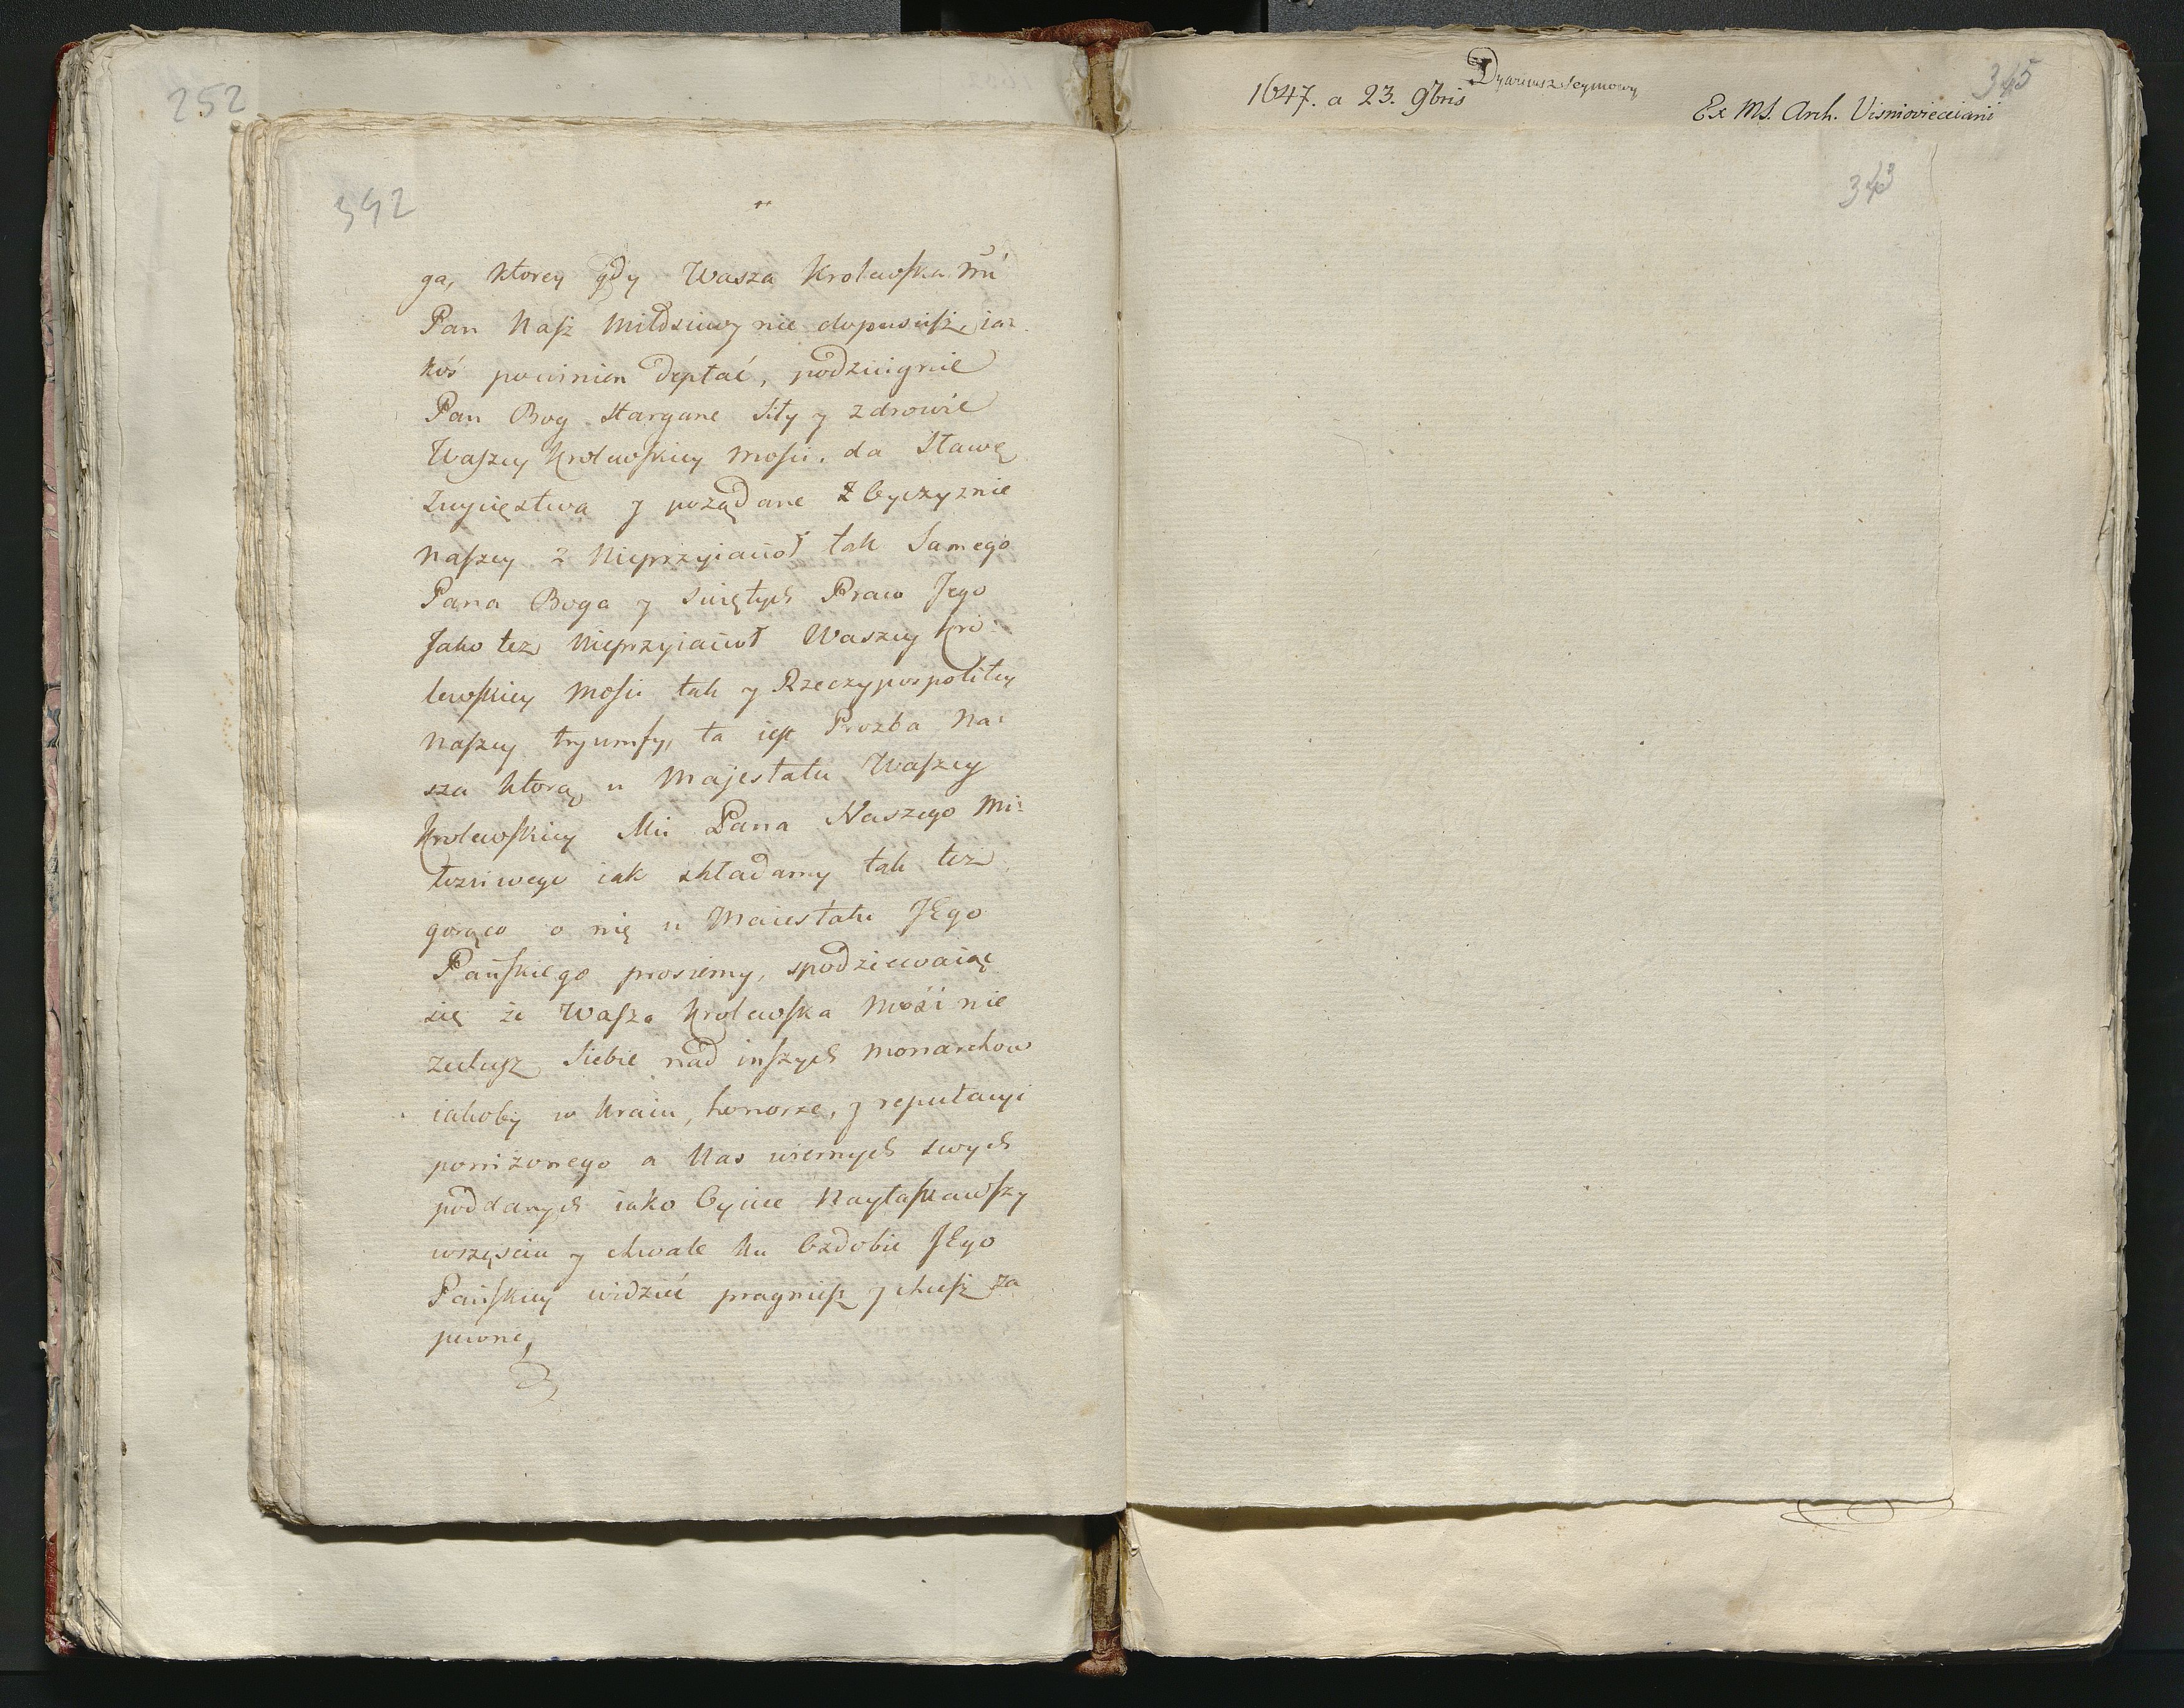 252
342
ga, ktorey gdy Wasza Krolewska Mć
Pan Nasz Miłościwy nie dopuścisz, ia-
koś powinien deptać, podźwignie
Pan Bog stargane siły y zdrowie
Waszey Krolewskiey Mości. da sławę
zwycięstwa y pożądane Oyczyznie
naszey z Nieprzyiacioł tak Samego
Pana Boga y świętych Praw Jego
Jako też Nieprzyiacioł Waszey Kro-
lewskiey Mości tak y Rzeczypospolitey
naszey tryumfy, ta iest Prozba na-
sza ktorą u Majestatu Waszey
Krolewskiey Mći Pana Naszego Mi-
łosciwego iak składamy tak też
gorąco o nię u Maiestatu JEgo
Pańskiego prosiemy, spodziewaiąc
się że Wasza Krolewska Mość nie
Siebie nad inszych Monarchow
iakoby w kraiu, honorze, y reputacyi
poniżonego a Nas wiernych swych
poddanych iako Oyciec Nayłaskawszy
wszęściu y chwale ku Ozdobie JEgo
Pańskiey widzieć pragniesz y chcesz za
pewne,
1647. a 23. 9bris
Dyariusz Seymowy
Ex MS. Arch. Visniovieciani
345
343